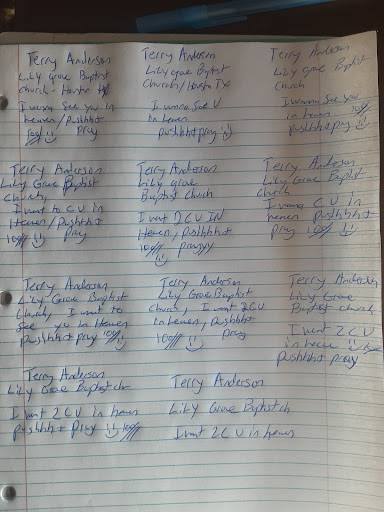 Terry Anderson
Lily Grove Baptist
church - Houston
I wanna See you in
heaven / Pushhh+
100% Pray
Terry Anderson
Lily Grove Baptist
Church / Houston TX
I wanna See U
in heven
pushhh+pray
Terry Anderson
Lily Grove Baptist
Church
I wanna See you
in heven 100%
pushhh+pray
Terry Anderson
Lily Grove Baptist
Church,
I want to C U in
Heaven / Pushhh+
100% pray
Terry Anderson
Lily Grove
Baptist church
I want 2 C U IN
Heven, pushhh+
100% prayyy
Terry Anderson
Lily Grove Baptist
church
I wanna C U in
heven pushhh+
pray 100%
Terry Anderson
Lily Grove Baptist
Church, I want to
See you in Heven
pushhh+ pray 100%
Terry Anderson
Lily Grove Baptist
Church, I want 2 C U
in heven, pushhh+
100% pray
Terry Anderson
Lily Grove
Baptist church
I want 2 C U
in
pushhh+ pray
Terry Anderson
Lily Grove Baptist ch
I want 2 C U in heven
pushhh+ pray 100%
Terry Anderson
Lily Grove Baptist ch
I want 2 C U in heven